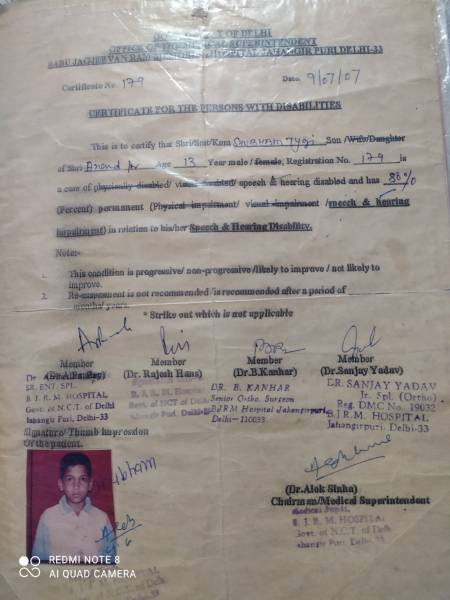 OF DELHI
OFFICE OF MEDICAL SUPERINTENDENT
BABU JAGJEEVAN RAM JAHANGIR PURI DELHI-33
Certificate No. 179 Date. 9/07/07
CERTIFICATE FOR THE PERSONS WITH DISABILITIES
This is to certify that Shri/Smt/Kum Shubham Tyagi Son /Wife/Daughter
of Shri Anand Age 13 Year male / female, Registration No. 179 is
a case of physically disabled/ visual disabled/ speech & hearing disabled and has 88%
(Percent) permanent (Physical impairment/ visual impairment /speech & hearing
impairment) in relation to his/her Speech & Hearing Disability.
Note:-
1. This condition is progressive/ non-progressive /likely to improve / not likely to
improve.
2. Re-assessment is not recommended /is recommended after a period of
months/ years.
* Strike out which is not applicable
Member Member Member Member
(Dr. Rajesh Hans) (Dr.B.Kanhar) (Dr.Sanjay Yadav)
SR. ENT. SPL.
B. J. R. M. HOSPITAL
Govt. of N.C.T. of Delhi
Jahangir Puri, Delhi-33
B. J. R. M. HOSPITAL
Govt. of NCT of Delhi
DR. B. KANHAR
Senior Ortho. Surgeon
BJRM Hospital Jahangirpuri,
Delhi-110033
DR. SANJAY YADAV
Jr. Spl. (Ortho)
Reg. DMC No. 19032
B.J.R.M. HOSPITAL
Jahangirpuri, Delhi-33
Signature/ Thumb impression
Of the patient.
(Dr.Alok Sinha)
Chairman/Medical Superintendent
Medical Supdt.
B. J. R. M. HOSPITAL
Govt. of N.C.T. of Delhi
Jahangir Puri, Delhi-33
REDMI NOTE 8
AI QUAD CAMERA